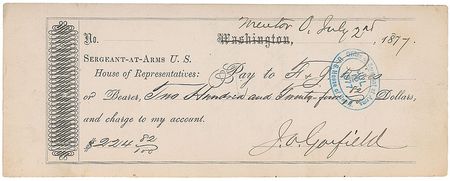 Mentor O, July 2nd
No. Washington, 1877.
SERGEANT-AT-ARMS U. S.
House of Representatives: Pay to
or Bearer, Two Hundred and Twenty-four Dollars,
and charge to my account.
$224 82/100 J. A. Garfield